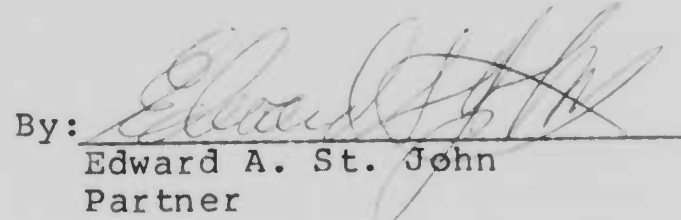 By:
Edward A. St. John
Partner